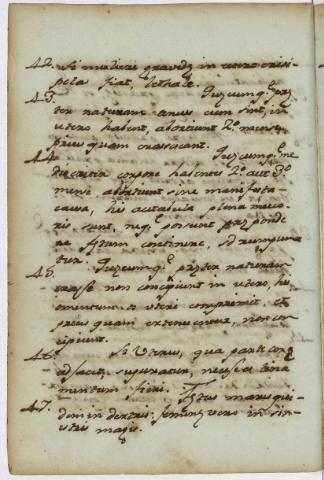 42. Si mulieri gravidę in utero erisi-
pela fiat, lethale.
43. Quęcumq; pręt
ter naturam tenues cum sint, in
utero habent, abortiunt 2.º mense
prius quam crassescant.
44. Quęcumq; me
diocriter corpore habentes 2.º aut 3.º
mense abortiunt sine manifesta
causa, his acetabula plena muco
ris sunt, neq; possunt pręs pondę
re fętum continere, sed rumpun
tur.
45. Quęcumq; pręter naturam
crassę non concipiunt in utero, his
omentum os uteri comprimit, et
prius quam extenuentur, non con
cipiunt.
46. Si Uterus, qua parti coxę
adjacet, supuratur, necesse est lina
mentum fieri.
47. Fętus mares qui-
dem in dextris, feminę vero in sin
istris magis.